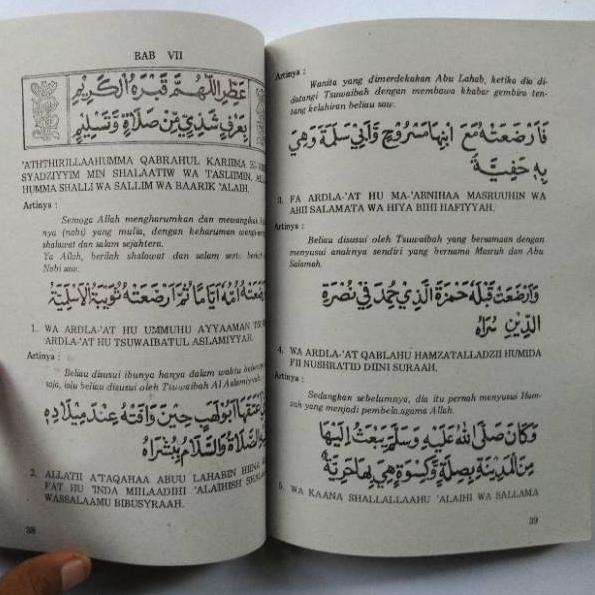 BAB VII
عَطِّرِ اللَّهُمَّ قَبْرَهُ الْكَرِيْمَ
بِعَرْفٍ شَذِيٍّ مِّنْ صَلَاةٍ وَّتَسْلِيْمٍ
'ATHTHIRILLAAHUMMA QABRAHUL KARIIMA
SYADZIYYIM MIN SHALAATIW WA TASLIIMIN,
HUMMA SHALLI WA SALLIM WA BAARIK 'ALAIH.
Artinya :
Semoga Allah mengharumkan dan mewangikan
nya (nabi) yang mulia, dengan keharuman
shalawat dan salam sejahtera.
Ya Allah, berilah shalawat dan salam serta
Nabi saw.
أُمُّهُ أَيَّامًا ثُمَّ أَرْضَعَتْهُ ثُوَيْبَةُ الْأَسْلَمِيَّةُ
1. WA ARDLA-'AT HU UMMUHU AYYAAMAN
ARDLA-'AT HU TSUWAIBATUL ASLAMIYYAH.
Artinya :
Beliau disusui ibunya hanya dalam waktu
saja, lalu beliau disusui oleh Tsuwaibah Al Aslamiyyah.
أَبُوْلَهَبٍ حِيْنَ وَافَتْهُ عِنْدَ مِيْلَادِهِ
الصَّلَاةُ وَالسَّلَامُ بِبُشْرَاهُ
2. ALLATII A'TAQAHAA ABUU LAHABIN HIINA
FAT HU 'INDA MIILAADIHI 'ALAIHISH
WASSALAAMU BIBUSYRAAH.
38
Artinya :
Wanita yang dimerdekakan Abu Lahab, ketika dia di-
datangi Tsuwaibah dengan membawa khabar gembira ten-
tang kelahiran beliau saw.
فَأَرْضَعَتْهُ مَعَ ابْنِهَا مَسْرُوْحٍ وَّأَبِيْ سَلَمَةَ وَهِيَ
بِهِ حَفِيَّةٌ
3. FA ARDLA-'AT HU MA-'ABNIHAA MASRUUHIN WA
ABII SALAMATA WA HIYA BIHI HAFIYYAH.
Artinya :
Beliau disusui oleh Tsuwaibah yang bersamaan dengan
menyusui anaknya sendiri yang bernama Masruh dan Abu
Salamah.
وَأَرْضَعَتْ قَبْلَهُ حَمْزَةَ الَّذِيْ حُمِدَ فِيْ نُصْرَةِ
الدِّيْنِ سُرَاهُ
4. WA ARDLA-'AT QABLAHU HAMZATALLADZII HUMIDA
FII NUSHRATID DIINI SURAAH.
Artinya :
Sedangkan sebelumnya, dia itu pernah menyusui Ham-
zah yang menjadi pembela agama Allah.
وَكَانَ صَلَّى اللهُ عَلَيْهِ وَسَلَّمَ يَبْعَثُ إِلَيْهَا
مِنَ الْمَدِيْنَةِ بِصِلَةٍ وَّكِسْوَةٍ هِيَ بِهَا حَرِيَّةٌ
5. WA KAANA SHALLALLAAHU 'ALAIHI WA SALLAMA
39